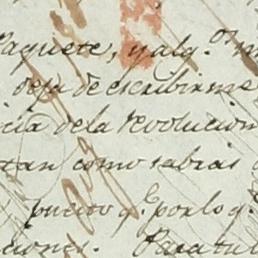 Paquete, y alg.º m
deja de escribirme
cia dela revolucion
tan como sabrás
puerto q.e por lo q.
ciones. Para tu